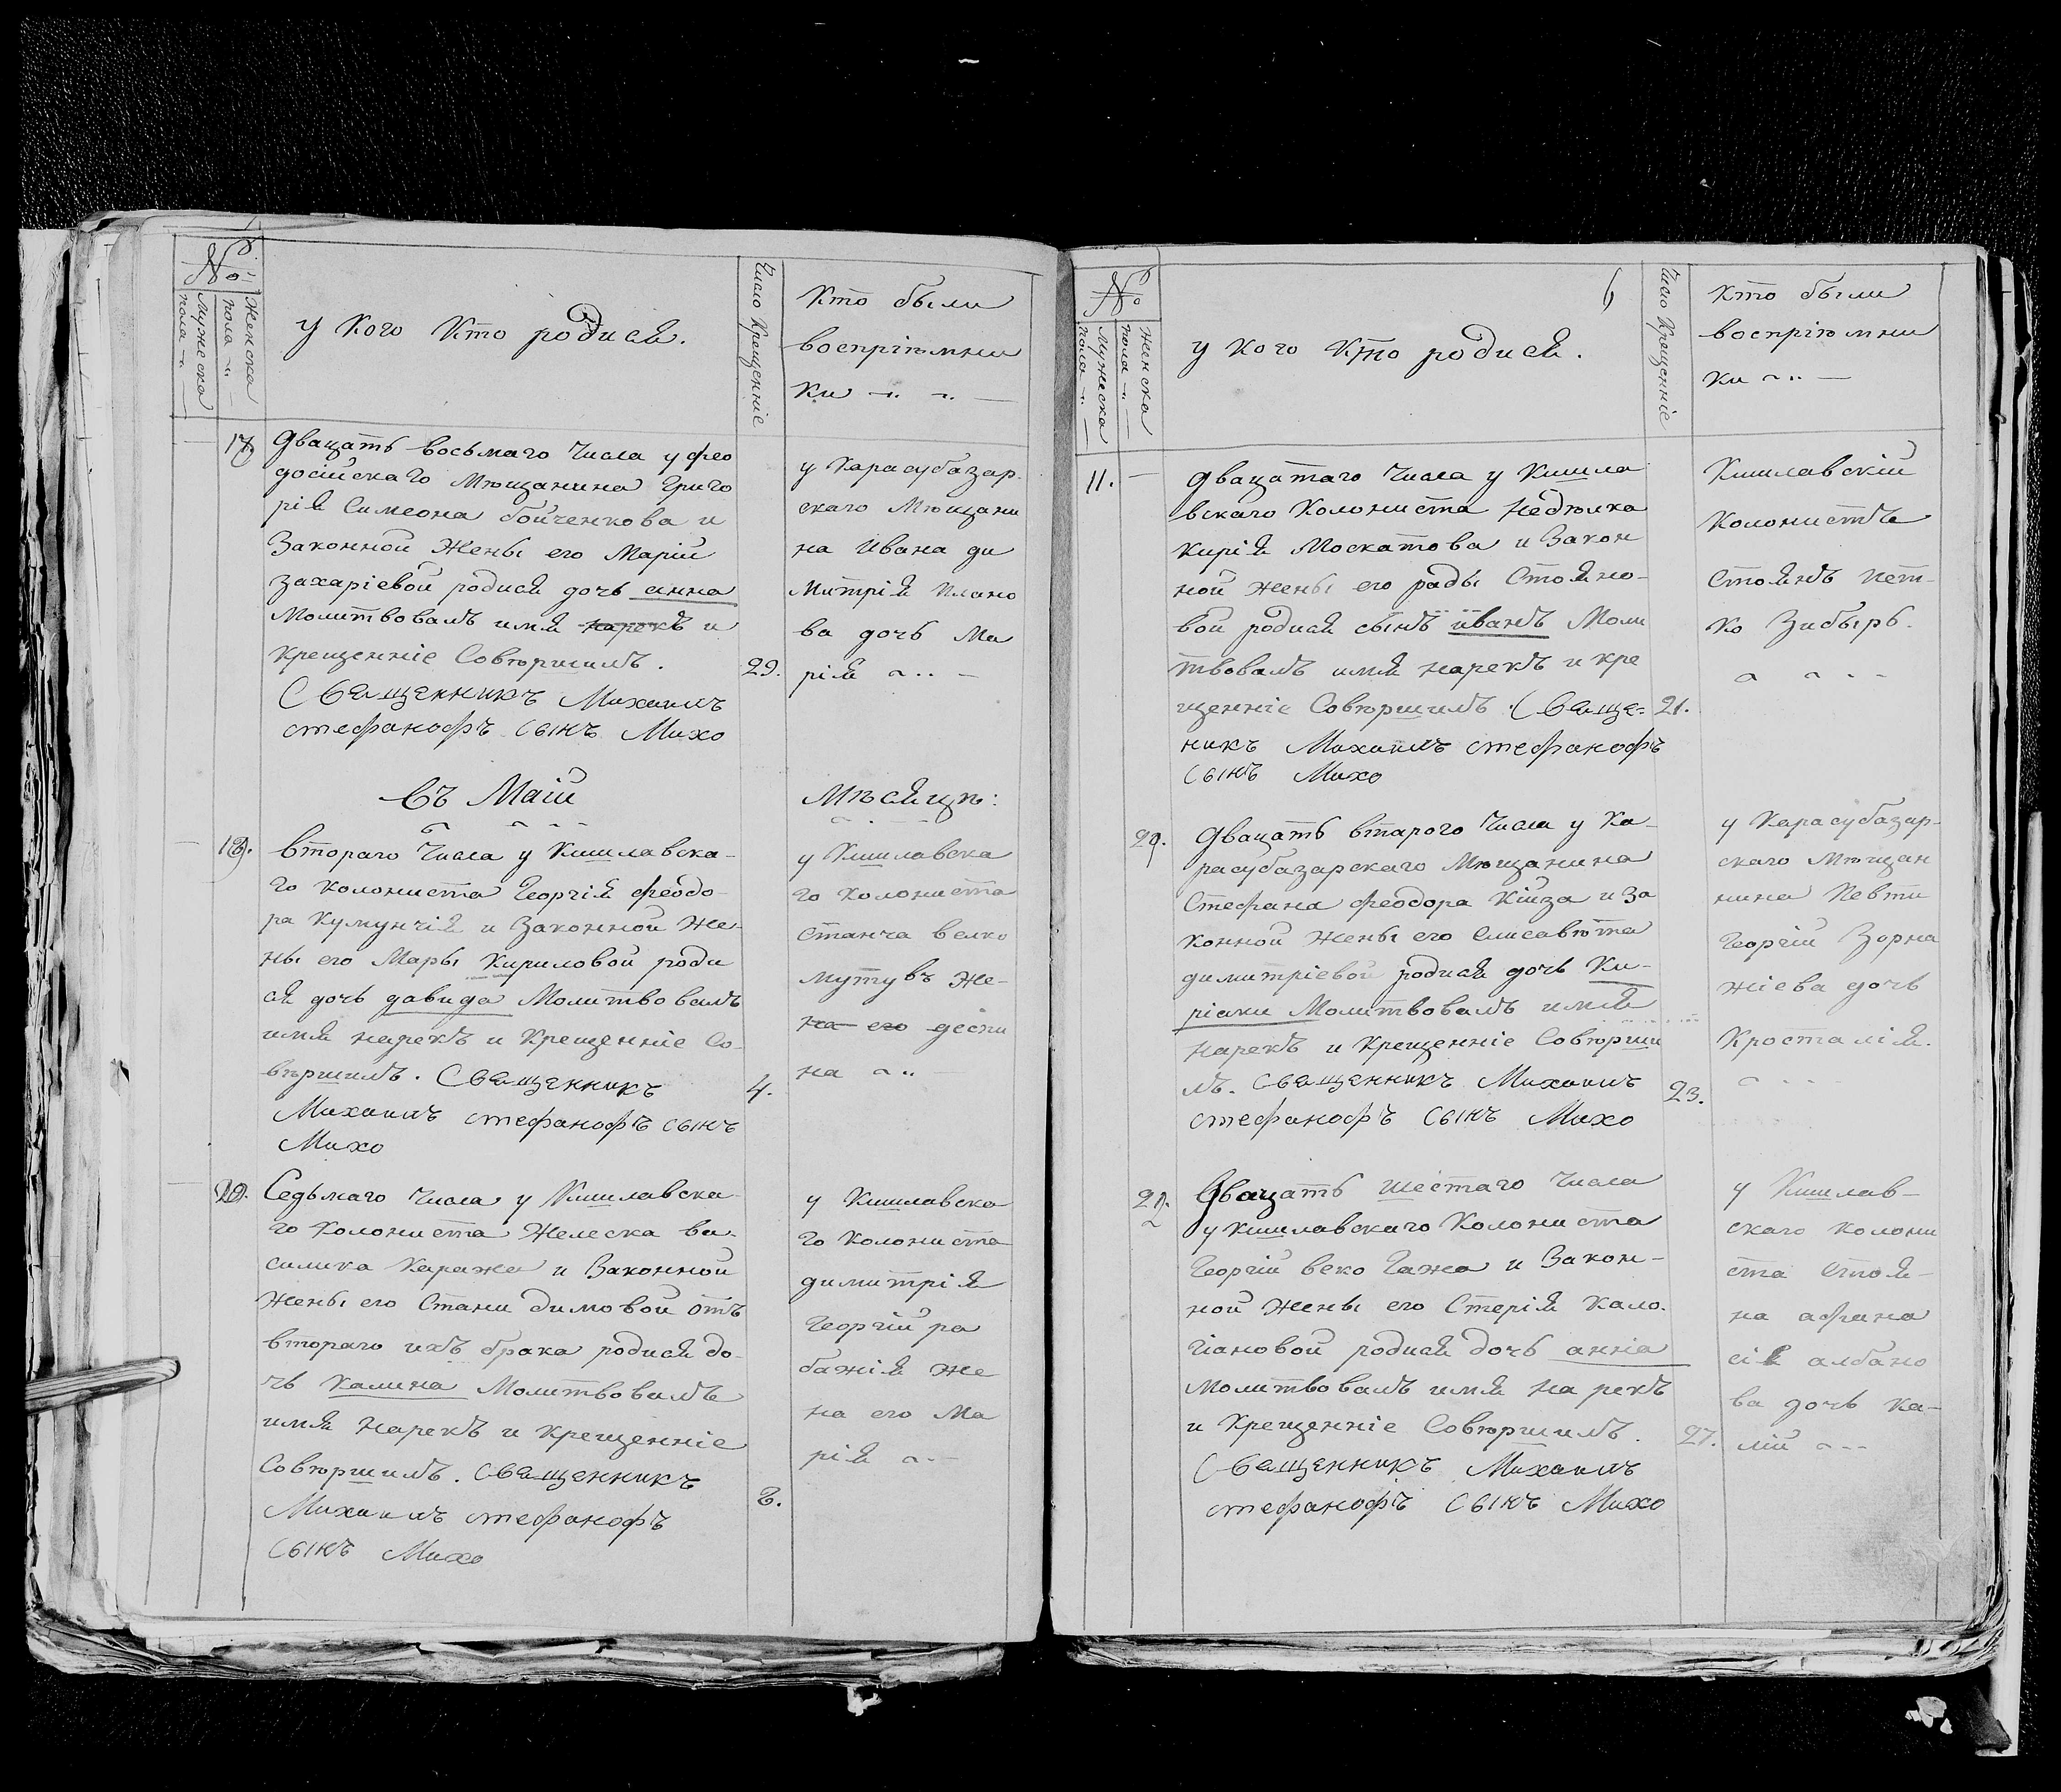 №
Мужеска пола
Женска пола
у кого кто родися.
Число Крещенніе
Кто были
воспріюмни
ки
17.
Двацать восьмаго Числа у фео
досійскаго Мющанина Григо
рія Симеона бойченкова и
Законной Жены его Марій
Захаріевой родися дочь анна
Молитвовалъ имя нарекъ и
Крещенніе Совюршилъ.
29.
Священникъ Михаилъ
стефанофъ сынъ Михо
у Карасубазар
скаго Мющани
на Ивана ди
митрія Плано
ва дочь Ма
рія
Въ Маій
Мѣсяцѣ:
втораго Числа у Кишлавска-
го колониста Георгія феодо-
ра Кумунчія и Законной Же-
ны его Мары Кириловой роди
ся дочь давида Молитвовалъ
имя нарекъ и Крещенніе Со-
вюршилъ. Священникъ
4.
Михаилъ стефанофъ сынъ
Михо
у Кишлавска
го колониста
Станча велко
мутувъ Же-
на его деспи
на
Седьмаго Числа у Кишлавска-
го Колониста Желеска ва-
силика Каража и Законной
Жены его Стани димовой отъ
втораго ихъ брака родися до-
чь Калина Молитвовалъ
имя нарекъ и Крещенніе
Совюршилъ. Священникъ
Михаилъ стефанофъ
сынъ Михо
у Кишлавска
го Колониста
димитрія
Георгій ра
бажія Же
на его Ма
рія
№
Мужеска пола
Женска пола
у кого кто родися.
6
Число Крещенніе
Кто были
воспріюмни
ки
11.
двацатаго Числа у Кишла
вскаго Колониста Недюлка
Кирія Москатова и Закон
ной жены его рады Стояно-
вой родися сынъ иванъ Моли
твовалъ имя нарекъ и кре
щенніе Совюршилъ. Свяще-
21.
никъ Михаилъ стефанофъ
сынъ Михо
Кишлавскій
Колонистъ
Стоянъ пет-
ко Зибырь.
Двацать втараго Числа у Ка-
расубазарскаго Мющанина
Стефана феодора Кійза и За
конной Жены его Елисавюта
димитріевой родися дочь Ки-
ріаки Молитвовалъ имя
нарекъ и Крещенніе Совюрши
лъ. Священникъ Михаилъ
23.
стефанофъ сынъ Михо
у Карасубазар-
скаго Мющан
нина Певти
Георгій Зорна
жіева дочь
Кросталія.
Двацать шестаго Числа
у Кишлавскаго Колониста
Георгій веко Гажа и Закон-
ной Жены его Стерія Кало-
гіановой родися дочь анна
Молитвовалъ имя нарекъ
и Крещенніе Совюршилъ.
27.
Священникъ Михаилъ
стефанофъ сынъ Михо
у Кишлав-
скаго колони
ста Стоя-
на афана
сія албано
ва дочь Ка-
лій